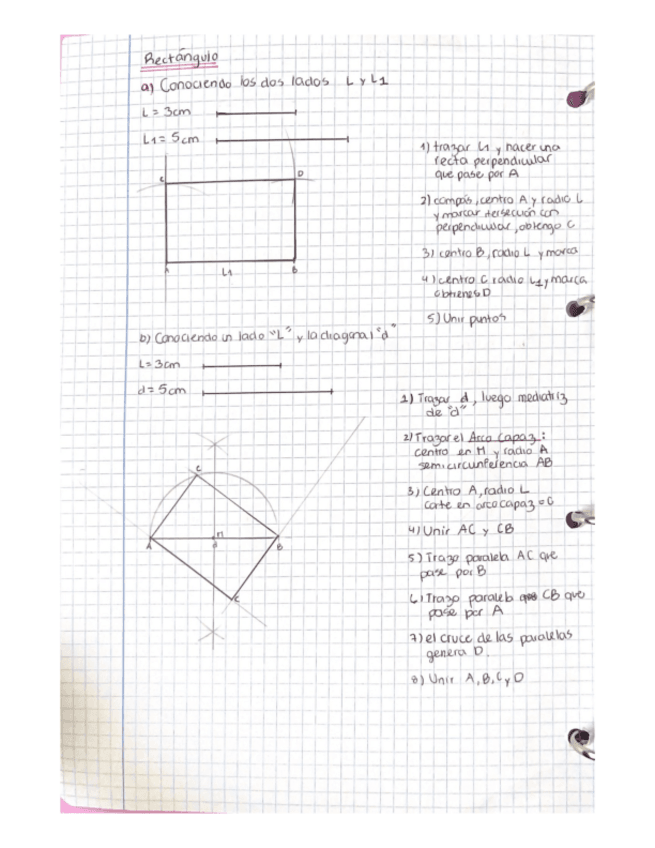 Rectángulo
a) Conociendo los dos lados L y L1
L = 3cm
L1 = 5cm
C
D
A
L1
B
1) trazar L1 y hacer una
recta perpendicular
que pase por A
2) compás, centro A y radio L
y marcar itersección con
perpendicular, obtengo C
3) centro B, radio L y marca
4) centro C radio L1 y marca
obtienes D
5) Unir puntos
b) Conociendo un lado "L" y la diagonal "d"
L = 3cm
d = 5cm
C
A
M
d
B
C
1) Trazar d, luego mediatriz
de "d"
2) Trazar el Arco Capaz:
centro en M y radio A
semicircunferencia AB
3) Centro A, radio L
corte en arco capaz = C
4) Unir AC y CB
5) Trazo paralela AC que
pase por B
6) Trazo paralela CB que
pase por A
7) el cruce de las paralelas
genera D.
8) Unir A, B, C y D